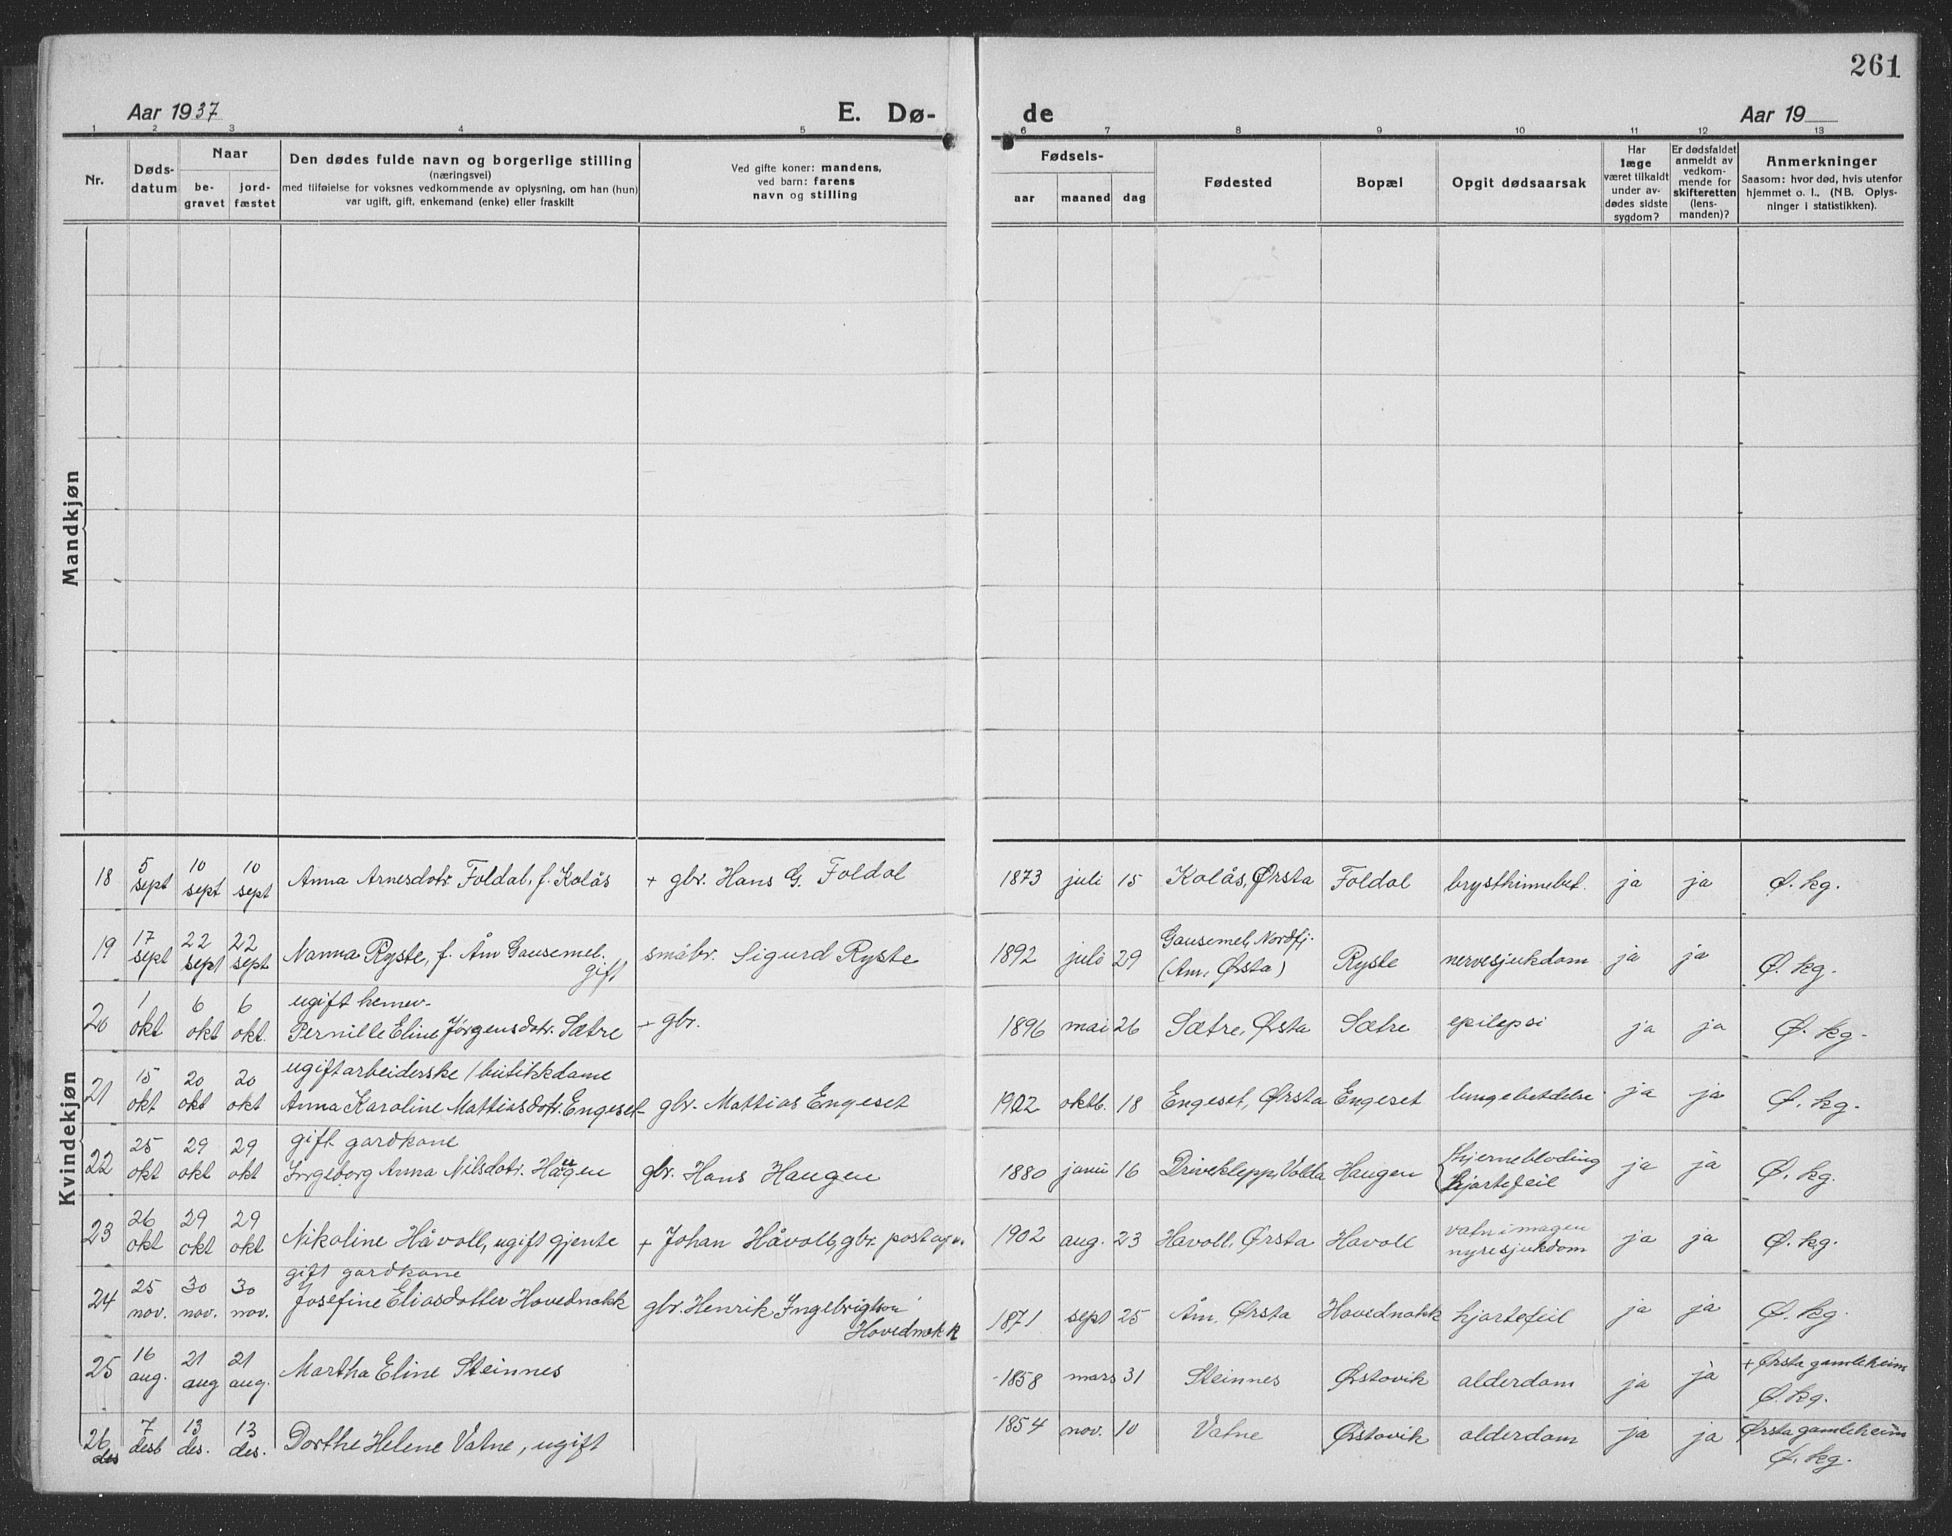 261
Aar 1937
E. Dø-
de
Aar 19
1 2 3 4 5 6 7 8 9 10 11 12 13
Nr.
Døds-
datum
Naar
be-
gravet
jord-
fæstet
Den dødes fulde navn og borgerlige stilling
(næringsvei)
med tilføielse for voksnes vedkommende av oplysning, om han (hun)
var ugift, gift, enkemand (enke) eller fraskilt
Ved gifte koner: mandens,
ved barn: farens
navn og stilling
Fødsels-
aar maaned dag
Fødested
Bopæl
Opgit dødsaarsak
Har
læge
været tilkaldt
under av-
dødes sidste
sygdom?
Er dødsfaldet
anmeldt av
vedkom-
mende for
skifteretten
(lens-
manden)?
Anmerkninger
Saasom: hvor død, hvis utenfor
hjemmet o. l., (NB. Oplys-
ninger i statistikken).
Mandkjøn
Kvindekjøn
18 5 sept 10 sept 10 sept Anna Arnesdotr. Foldal, f. Kolås + gbr. Hans G. Foldal 1873 juli 15 Kolås, Ørsta Foldal brysthinnebet. ja ja Ø. kg.
19 17 sept 22 sept 22 sept Nanna Ryste, f. Åm Gausemel. gift småbr. Sigurd Ryste 1892 juli 29 Gausemel, Nordfj. (Åm, Ørsta) Ryste nervesjukdom ja ja Ø. kg.
20 1 okt 6 okt 6 okt. ugift hemev.
Pernille Eline Jørgensdotr. Sætre + gbr. 1896 mai 26 Sætre, Ørsta Sætre epilepsi ja ja Ø. kg.
21 15 okt 20 okt 20 okt ugift arbeiderske / butikkdame
Anna Karoline Mattiasdotr. Engeset gbr. Mattias Engeset 1902 oktb. 18 Engeset, Ørsta Engeset lungebetdelse ja ja Ø. kg.
22 25 okt 29 okt 29 okt gift gardkone
Ingeborg Anna Nilsdotr. Haugen gbr. Hans Haugen 1880 16 Driveklepp, Volda Haugen hjernebloding
hjartefeil ja ja Ø. kg.
23 26 okt 29 okt 29 okt Nikoline Håvoll, ugift gjente + Johan Håvoll, gbr. postopn. 1902 aug. 23 Havoll, Ørsta Havoll vatn i magen
nyresjukdom ja ja Ø. kg.
24 25 nov. 30 nov. 30 nov. gift gardkone
Josefine Eliasdotter Hovednakk gbr. Henrik Ingebrigtson
Hovednakk 1871 sept 25 Åm, Ørsta Hovednakk hjartefeil ja ja Ø. kg.
25 16 aug. 21 aug 21 aug. Martha Eline Steinnes 1858 mars 31 Steinnes Ørstavik alderdom ja ja + Ørsta gamleheim
Ø. kg.
26 des 7 desb 13 des. 13 des. Dorthe Helene Vatne, ugift 1854 nov. 10 Vatne Ørstavik alderdom ja ja Ørsta gamleheim
Ø. kg.